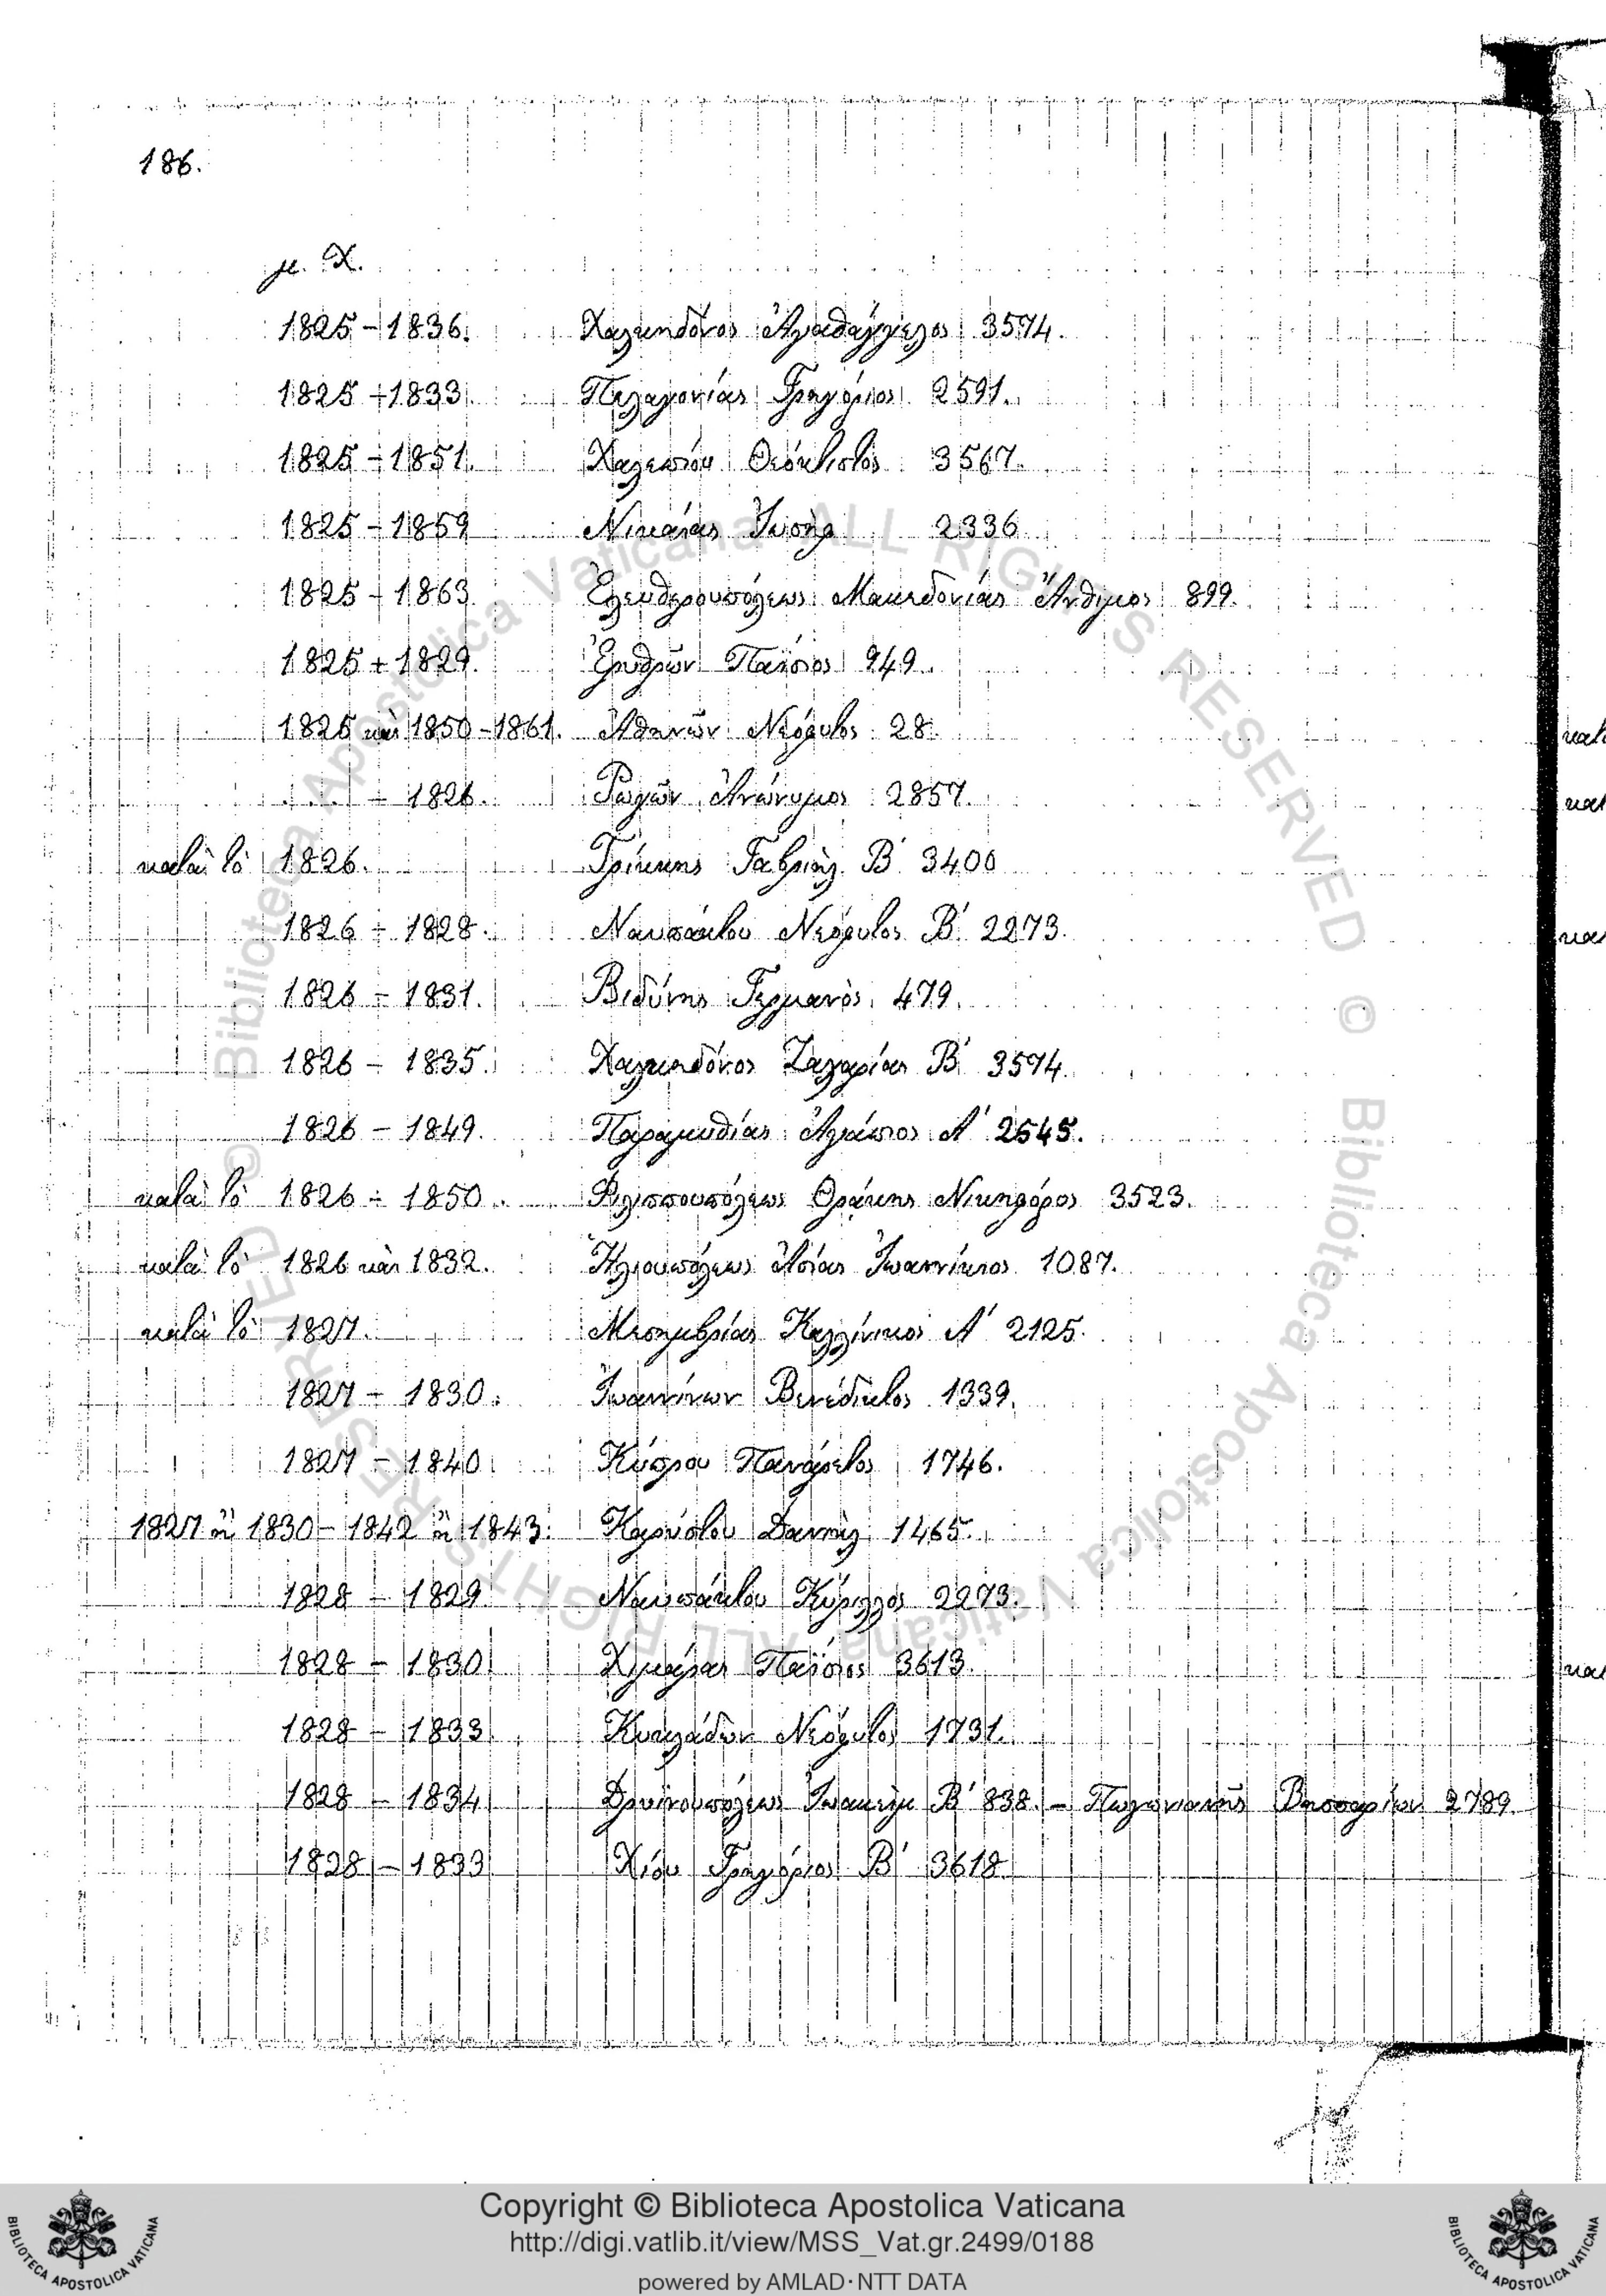 186.
μ. Χ.
1825 - 1836. Χαλκηδόνος Ἀγαθάγγελος 3574.
1825 + 1833. Πελαγονίας Γρηγόριος 2591.
1825 - 1851. Χαλεπίου Θεόκτιστος 3567.
1825 - 1859 Νικαίας Ἰωσὴφ 2336
1825 - 1863. Ἐλευθερουπόλεως Μακεδονίας Ἄνθιμος 899.
1825 + 1829. Ἐρυθρῶν Παΐσιος 949.
1825 καὶ 1850 - 1861. Ἀθηνῶν Νεόφυτος 28.
- 1826. Ῥωγῶν Ἀνώνυμος 2857.
κατὰ τὸ 1826. Τρίκκης Γαβριὴλ Β΄ 3400
1826 - 1828. Ναυπάκτου Νεόφυτος Β΄ 2273.
1826 - 1831. Βιδύνης Γερμανὸς 479.
1826 - 1835. Χαλκηδόνος Ζαχαρίας Β΄ 3574.
1826 - 1849. Παραμυθίας Ἀγάπιος Α΄ 2545.
κατὰ τὸ 1826 - 1850. Φιλιππουπόλεως Θράκης Νικηφόρος 3523.
κατὰ τὸ 1826 καὶ 1832. Ἡλιουπόλεως Ἀσίας Ἰωαννίκιος 1087.
κατὰ τὸ 1827. Μεσημβρίας Καλλίνικος Α΄ 2125.
1827 - 1830. Ἰωαννίνων Βενέδικτος 1339.
1827 - 1840. Κύπρου Πανάρετος 1746.
1827 ἢ 1830 - 1842 ἢ 1843. Καρύστου Δανιὴλ 1465.
1828 - 1829 Ναυπάκτου Κύριλλος 2273.
1828 - 1830 Χιμάρας Παΐσιος 3613.
1828 - 1833 Κυκλάδων Νεόφυτος 1731.
1828 - 1834 Δρυϊνουπόλεως Ἰωακεὶμ Β΄ 838. - Πωγωνιανῆς Βησσαρίων 2789
1828 - 1833 Χίου Γρηγόριος Β΄ 3618
Copyright © Biblioteca Apostolica Vaticana
http://digi.vatlib.it/view/MSS_Vat.gr.2499/0188
powered by AMLAD·NTT DATA